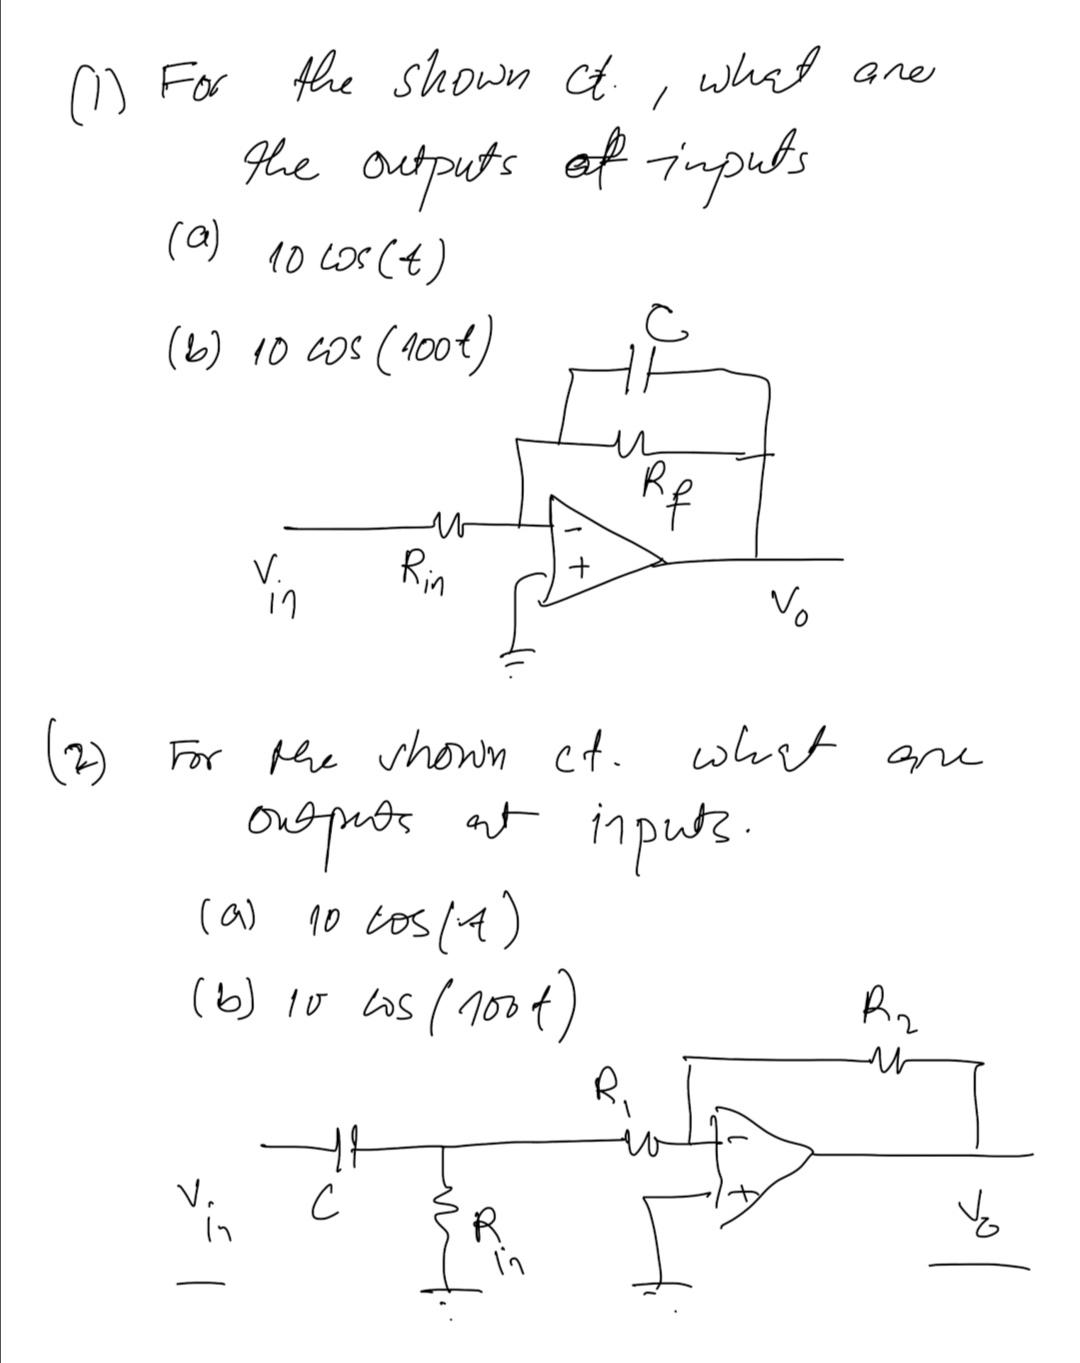 (1) For the shown ct., what are
the outputs at inputs
(a) 10 cos(t)
(b) 10 cos(100t)
C
Rf
-
+
Vin
Rin
Vo
(2) For the shown ct. what are
outputs at inputs.
(a) 10 cos(t)
(b) 10 cos(100t)
R2
R1
-
+
Vin
C
Rin
Vo